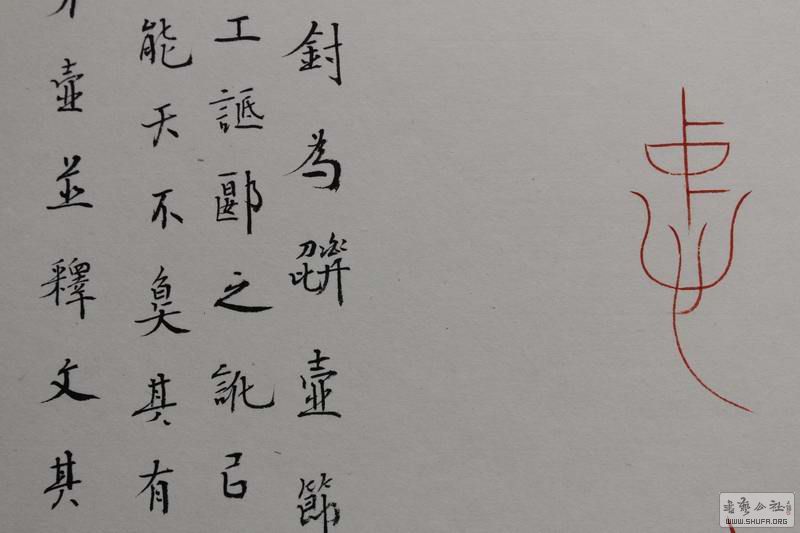 為壺節
工詆郾之訛㠯
能天不其有
壺並釋文其
書藝公社
WWW.SHUFA.ORG